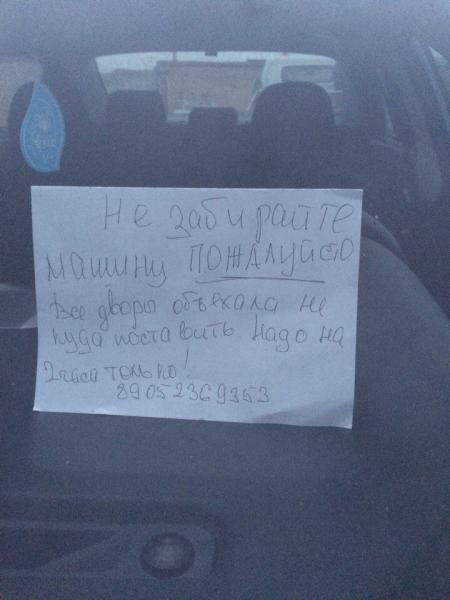 Не забирайте
машину ПОЖАЛУЙСТО
Все дворы объехала не
куда поставить Надо на
2 часа только!
89052369353